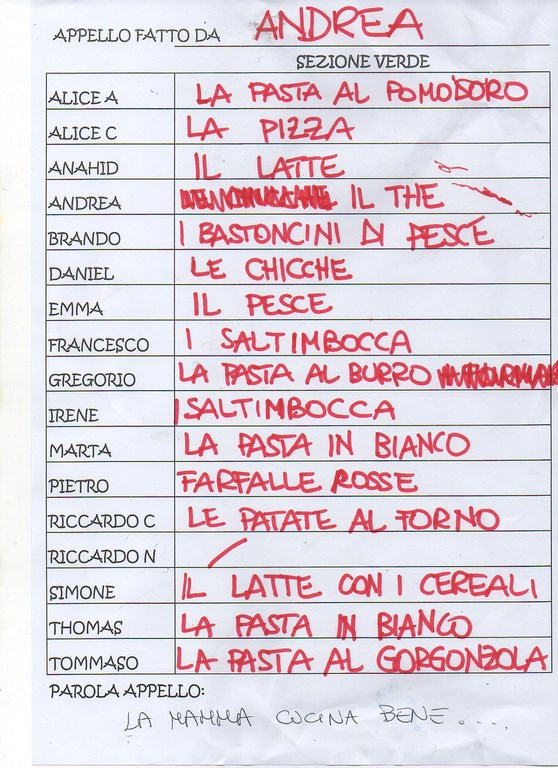 APPELLO FATTO DA ANDREA
SEZIONE VERDE
ALICE A LA PASTA AL POMODORO
ALICE C LA PIZZA
ANAHID IL LATTE
ANDREA IL THE
BRANDO I BASTONCINI DI PESCE
DANIEL LE CHICCHE
EMMA IL PESCE
FRANCESCO I SALTIMBOCCA
GREGORIO LA PASTA AL BURRO
IRENE I SALTIMBOCCA
MARTA LA PASTA IN BIANCO
PIETRO FARFALLE ROSSE
RICCARDO C LE PATATE AL FORNO
RICCARDO N
SIMONE IL LATTE CON I CEREALI
THOMAS LA PASTA IN BIANCO
TOMMASO LA PASTA AL GORGONZOLA
PAROLA APPELLO:
LA MAMMA CUCINA BENE.....